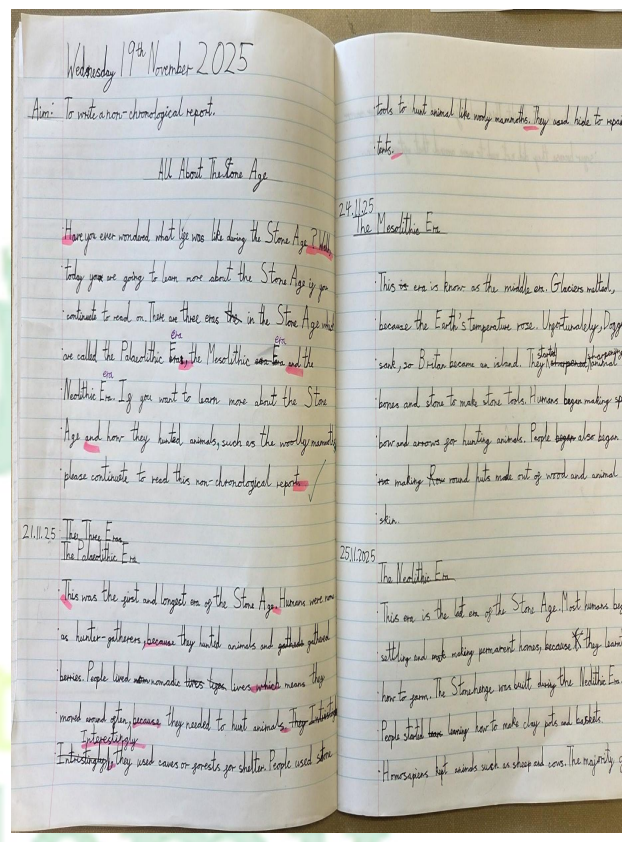 Wednesday 19th November 2025
Aim: To write a non-chronological report.
All About The Stone Age
Have you ever wondered what life was like during the Stone Age? Well,
today you are going to learn more about the Stone Age if you
continuate to read on. There are three eras in the Stone Age
era era
are called the Palaeolithic Era, the Mesolithic Era and the
era
Neolithic Era. If you want to learn more about the Stone
Age and how they hunted animals, such as the woolly mammoth,
please continuate to read this non-chronological report.
21.11.25 The Three Eras
The Palaeolithic Era
This was the first and longest era of the Stone Age. Humans were
as hunter-gatherers, because they hunted animals and gathered
berries. People lived nomadic lives which means they
moved around often, because they needed to hunt animals.
Interestingly
they used caves or forests for shelter. People used stone
tools to hunt animal like wooly mammoths. They used hide to
tents.
24.11.25
The Mesolithic Era
This era is know as the middle era. Glaciers melted,
because the Earth's temperature rose. Unfortunately,
started
sank, so Britan became an island. They animal
bones and stone to make stone tools. Humans began making
bow and arrows for hunting animals. People also began
making round huts made out of wood and animal
skin.
25.11.2025
The Neolithic Era
This era is the last era of the Stone Age. Most humans
settling and making permanent homes, because they
how to farm. The Stonehenge was built during the Neolithic Era.
People started how to make clay pots and baskets.
Homosapiens kept animals such as sheep and cows. The majority